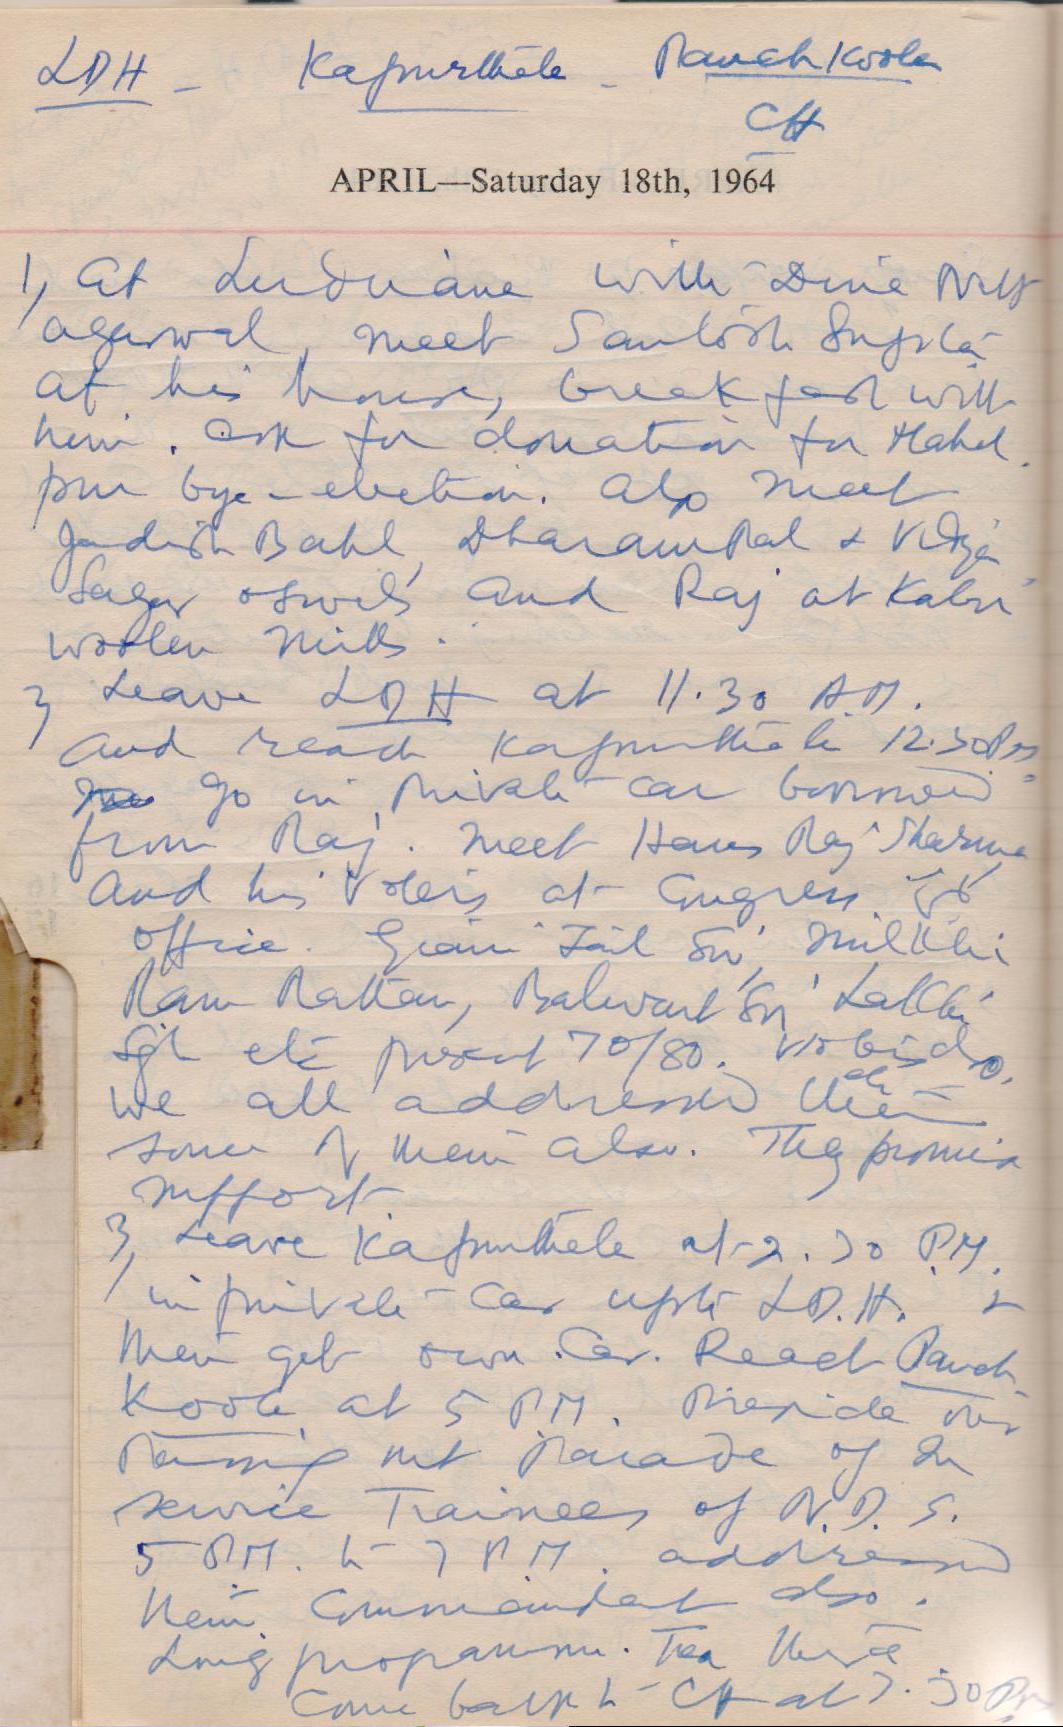 LDH - Kapurthala - Panchkoola
CH
APRIL—Saturday 18th, 1964
1, At Ludhiana with Dina Nath
Agarwal, meet Santosh Gupta
at his house, breakfast with
him. Ask for donation for Mahal
pur bye-election. Also meet
Jagdish Bahl, Dharam Pal & Vidya
Sagar Oswals and Raj at Kalsi
Woolen Mills.
2, Leave LDH at 11.30 A.M.
and reach Kapurthala 12.30 P.M.
go in private car borrowed
from Raj. Meet Hans Raj Sharma
and his voters at Congress
office. Giani Zail Sn, Milkhi
Ram Rattan, Balwant Sn, Lakhi
Sgh etc present 70/80.
We all addressed them
some of them also. They promise
support.
3, Leave Kapurthala at 2.30 P.M.
in private car upto LDH. &
then get own car. Reach Panch
Koola at 5 P.M. Preside over
Passing out Parade of In
service Trainees of N.D.S.
5 P.M. to 7 P.M. addressed
them. Commandant also.
Long programme. Tea there
Come back to CH at 7.30 PM